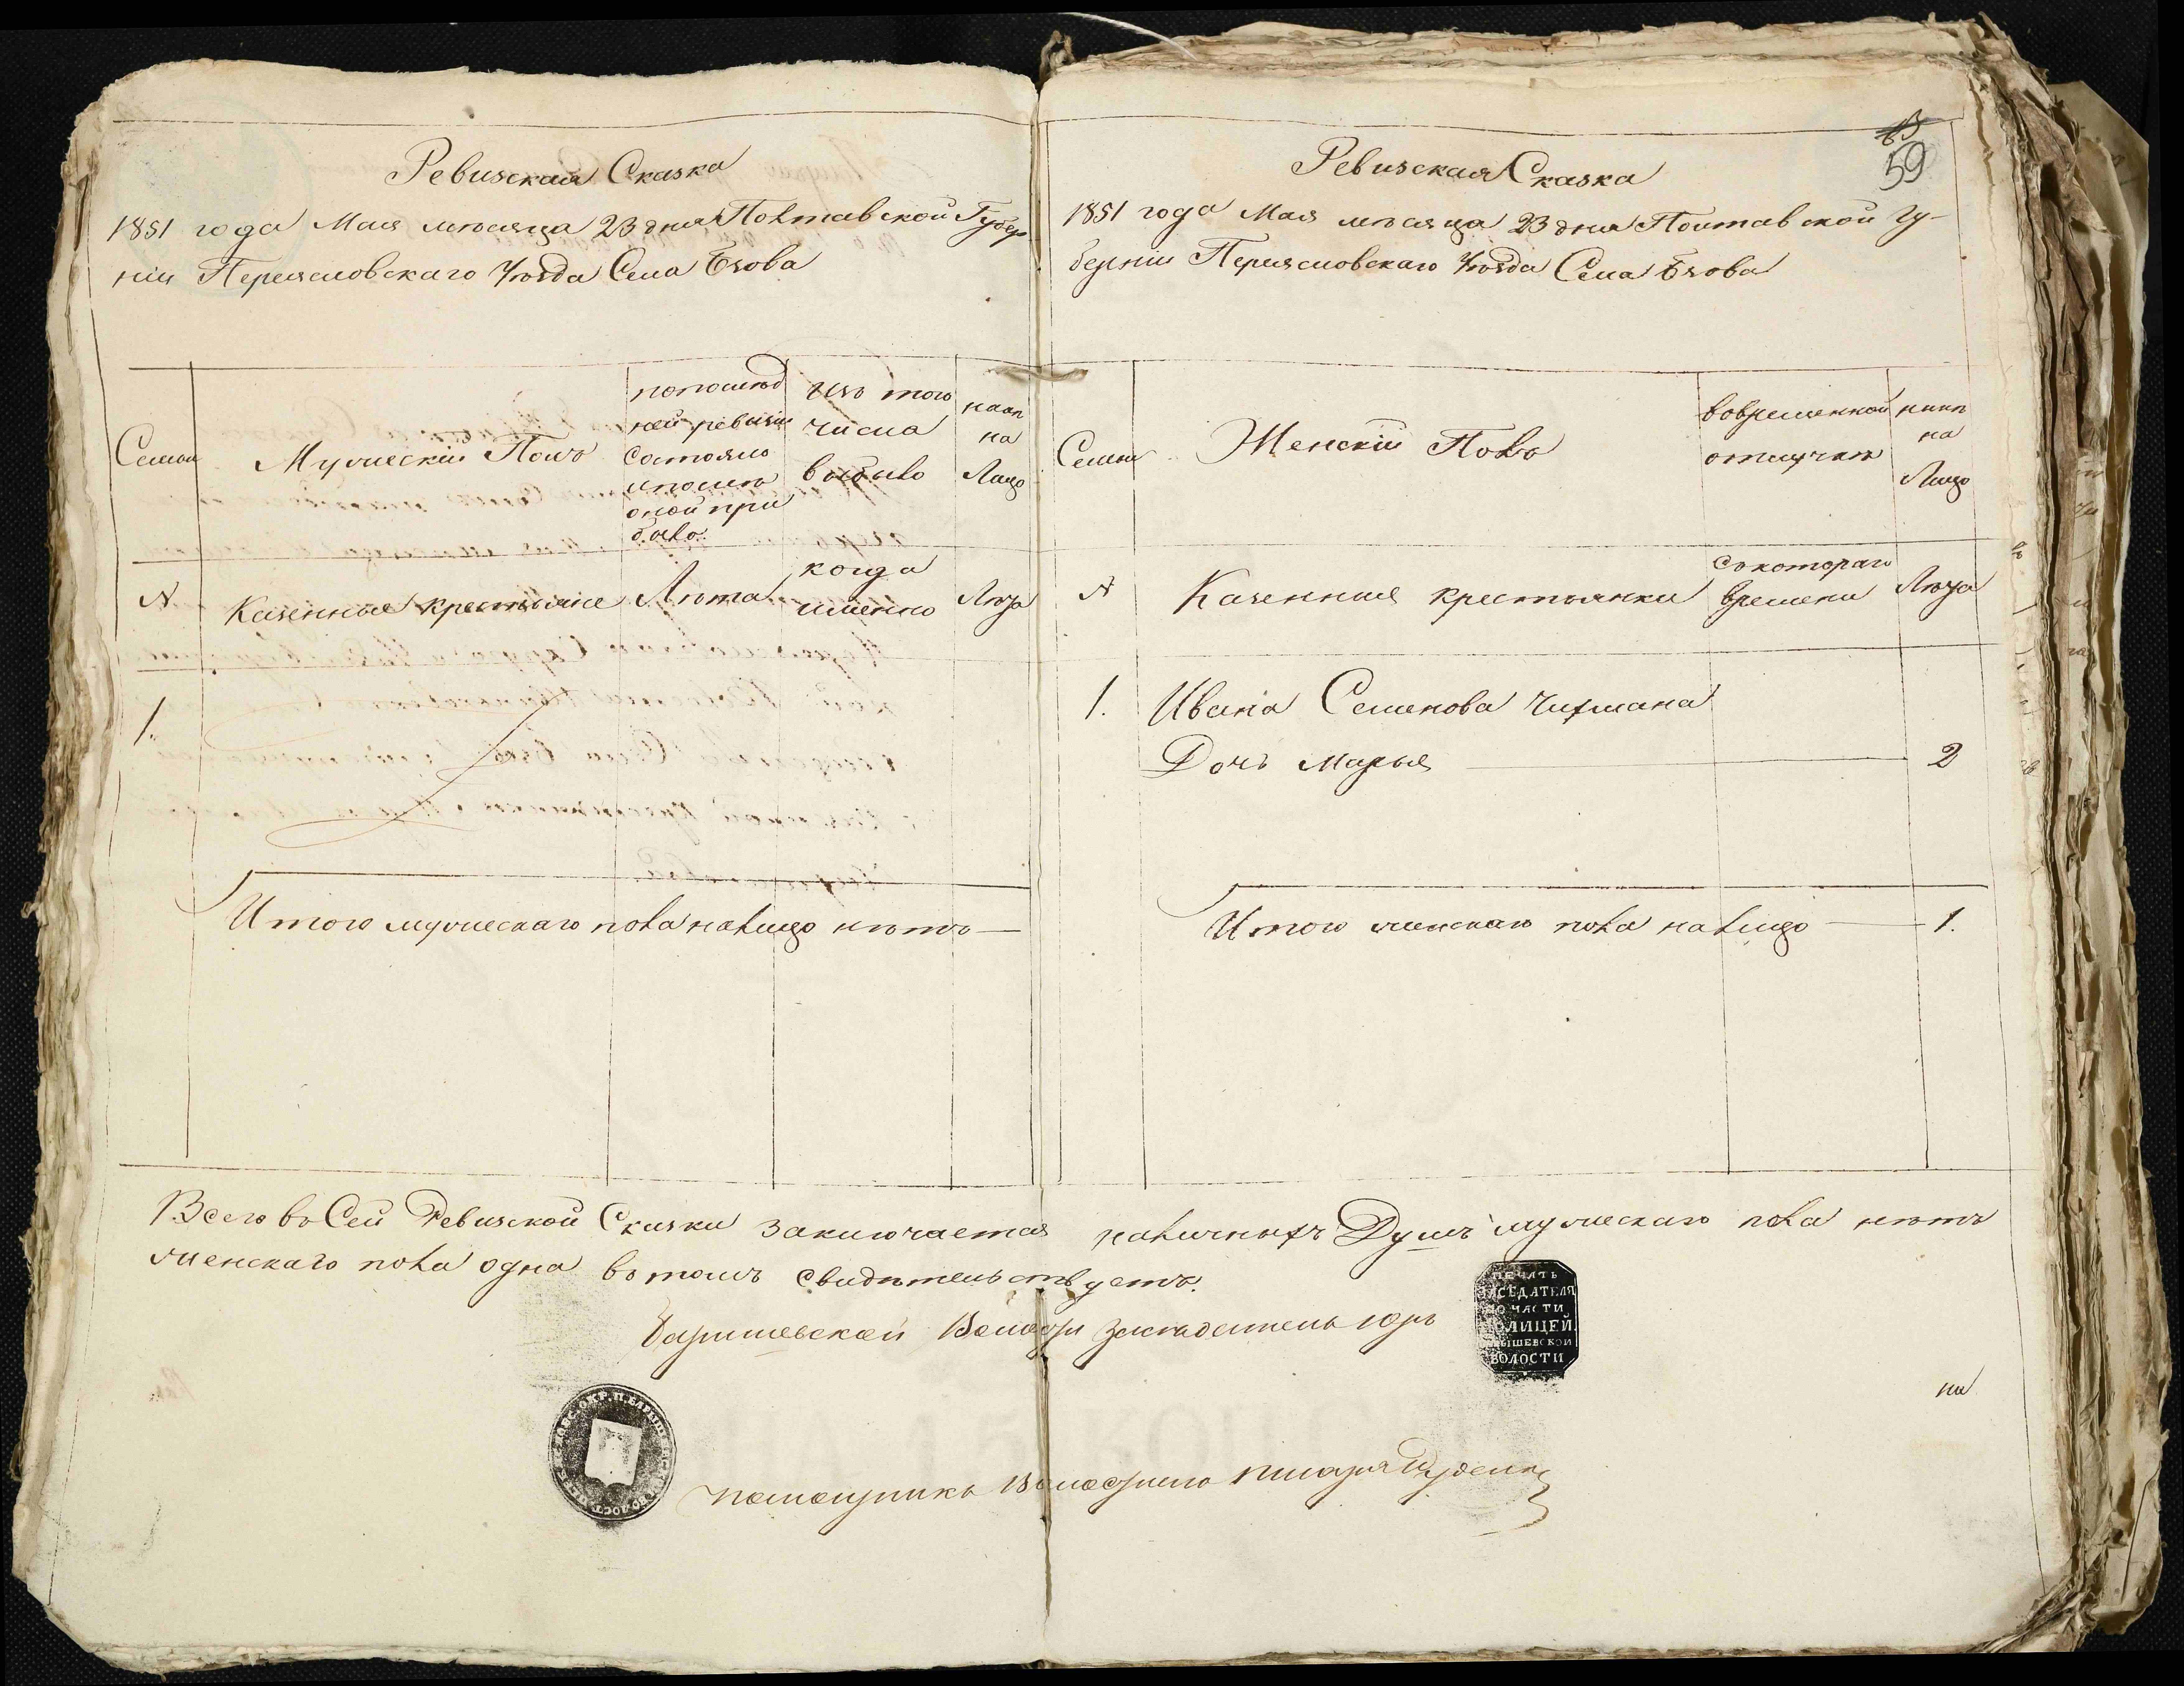 Ревизская Сказка
1851 года Мая месяца 23 дня Полтавской Губер
ніи Переясловскаго Уѣзда Села Бзова
Семьи
Мужескій Полъ
по послѣд
ней ревизіи
состояло
и послѣ
оной при
было.
Изъ того
числа
выбыло
на
Лицо
№
Казенные крестьяне
Лѣта
когда
именно
Лѣта
1.
Итого мужескаго пола налицо нѣтъ
59
Ревизская Сказка
1851 года Мая месяца 23 дня Полтавской Гу-
берніи Переясловскаго Уѣзда Села Бзова
Семьи
Женскій Полъ
во временной
отлучкѣ
на
Лицо
№
Казенныя крестьянки
съ котораго
времени
Лѣта
1.
Ивана Семенова Чирмана
Дочь Марья 2
Итого женскаго пола налицо 1.
Всего въ Сей Ревизской Сказки заключается наличныхъ Душъ мужескаго пола нѣтъ
женскаго пола одна въ томъ свидѣтельствуетъ.
Барышевской Волости Заседатель
ПЕЧАТЬ
ЗАСЕДАТЕЛЯ
ПО ЧАСТИ
ПОЛИЦЕЙ.
БАРЫШЕВСКОЙ
ВОЛОСТИ
помощникъ Волоснаго писаря